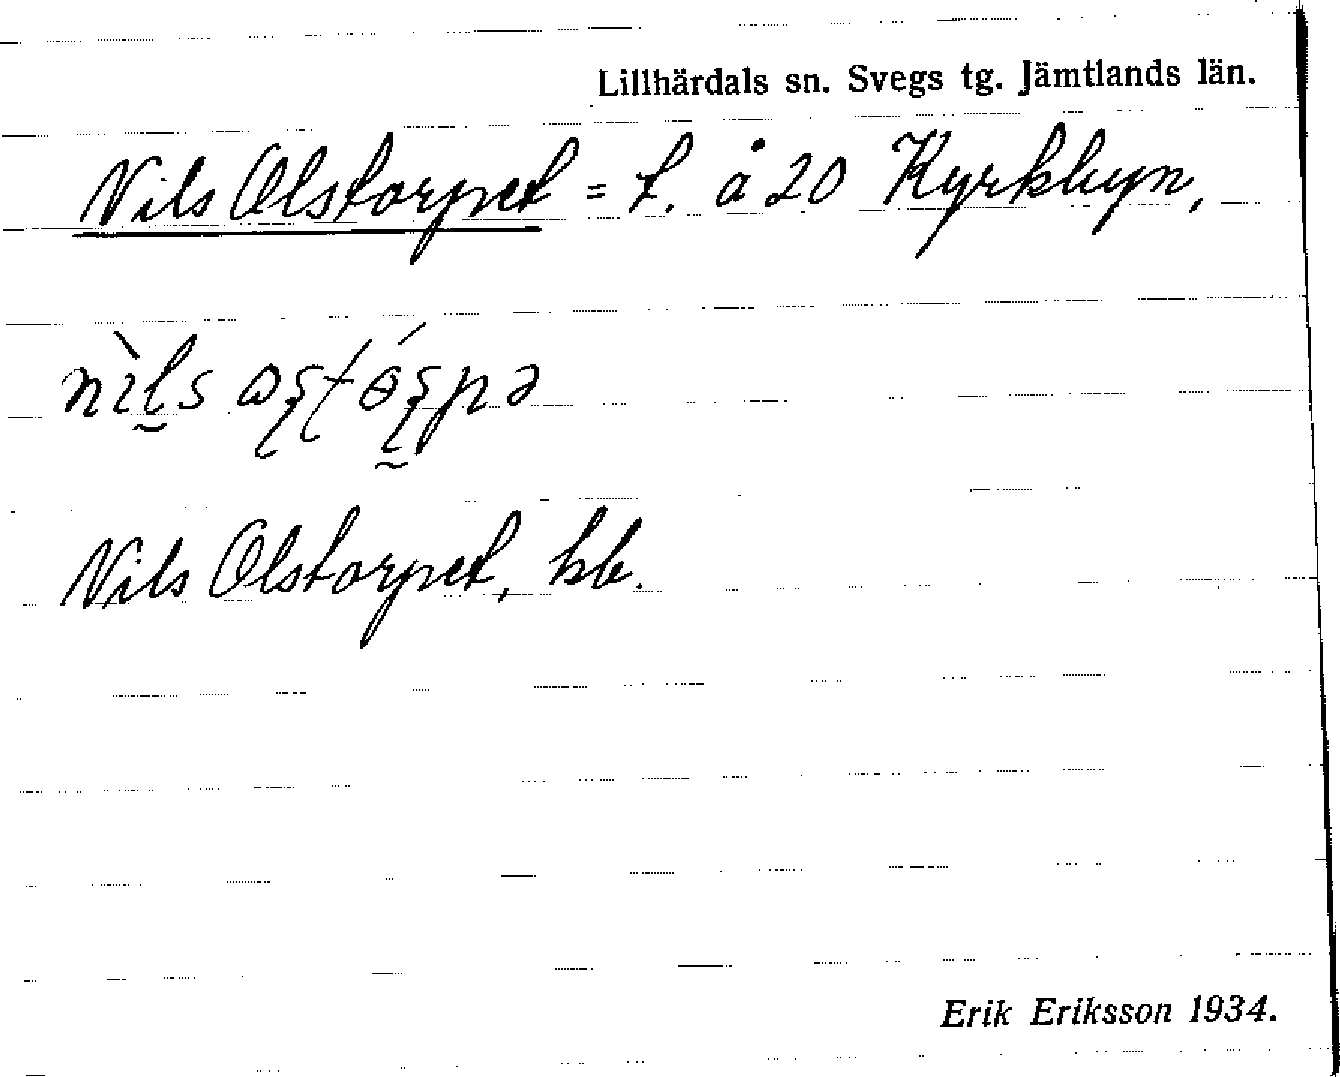 Lillhärdals sn. Svegs tg. Jämtlands län.
Nils Olstorpet = t. å 20 Kyrkbyn,
nìls
Nils Olstorpet, kb.
Erik Eriksson 1934.